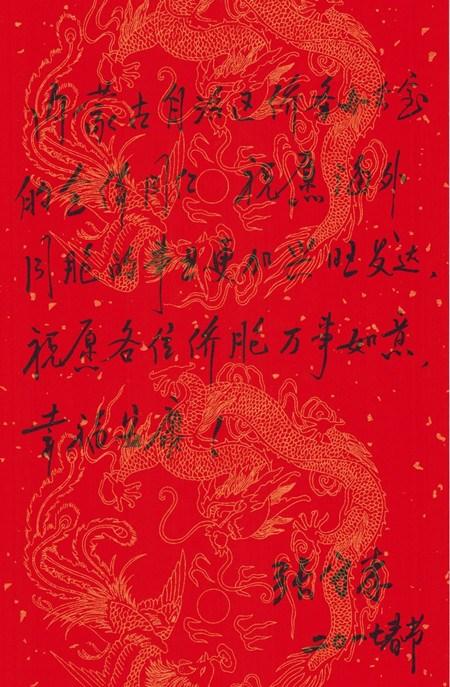 内蒙古自治区侨
的全体同仁 祝愿海外
同胞的事业更加兴旺发达，
祝愿各位侨胞万事如意，
幸福安康！
二〇一七春节